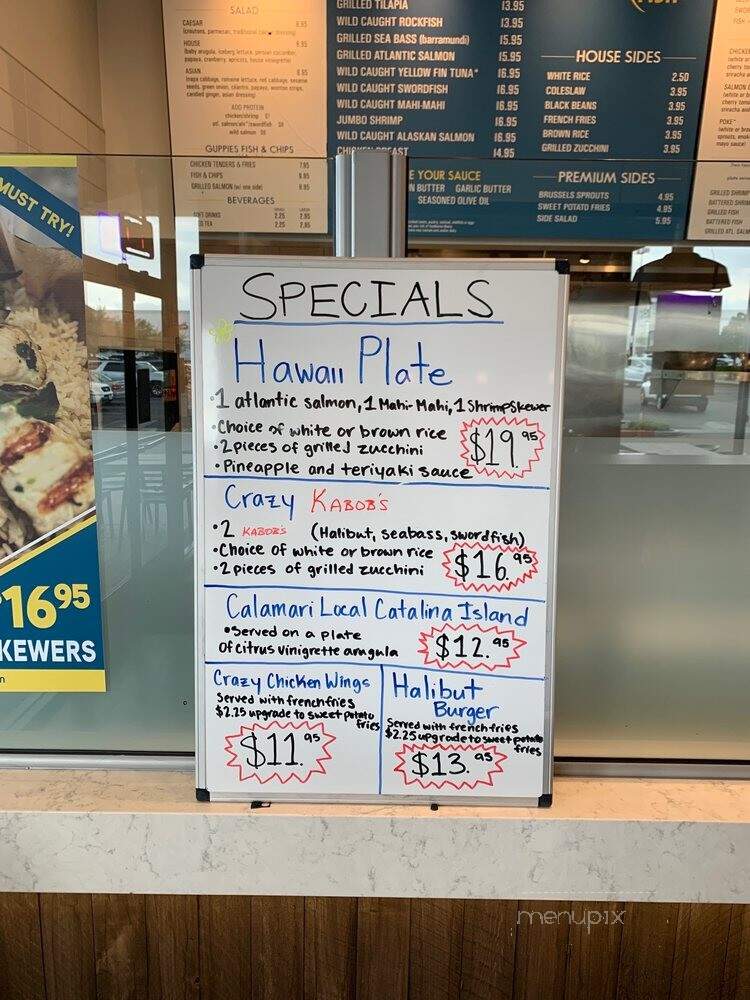 SALAD
CAESAR 8.95
HOUSE 8.95
ASIAN 8.95
ADD PROTEIN
GUPPIES FISH & CHIPS
CHICKEN TENDERS & FRIES 7.95
FISH & CHIPS 8.95
GRILLED SALMON (w/ one side) 8.95
BEVERAGES
SOFT DRINKS 2.25 2.95
TEA 2.25 2.95
GRILLED TILAPIA 13.95
WILD CAUGHT ROCKFISH 13.95
GRILLED SEA BASS (barramundi) 15.95
GRILLED ATLANTIC SALMON 15.95
WILD CAUGHT YELLOW FIN TUNA* 16.95
WILD CAUGHT SWORDFISH 16.95
WILD CAUGHT MAHI-MAHI 16.95
JUMBO SHRIMP 16.95
WILD CAUGHT ALASKAN SALMON 16.95
CHICKEN BREAST 14.95
E YOUR SAUCE
N BUTTER GARLIC BUTTER
SEASONED OLIVE OIL
FISH
HOUSE SIDES
WHITE RICE 2.50
COLESLAW 3.95
BLACK BEANS 3.95
FRENCH FRIES 3.95
BROWN RICE 3.95
GRILLED ZUCCHINI 3.95
PREMIUM SIDES
BRUSSELS SPROUTS 4.95
SWEET POTATO FRIES 4.95
SIDE SALAD 5.95
MUST TRY!
$16.95
KEWERS
SPECIALS
Hawaii Plate
• 1 atlantic salmon, 1 Mahi-Mahi, 1 Shrimp Skewer
• Choice of white or brown rice
• 2 pieces of grilled zucchini
• Pineapple and teriyaki sauce
$19.95
Crazy KABOB'S
• 2 KABOB'S (Halibut, seabass, swordfish)
• Choice of white or brown rice
• 2 pieces of grilled zucchini
$16.95
Calamari Local Catalina Island
• Served on a plate
of citrus vinigrette arugula
$12.95
Crazy Chicken Wings
Served with french fries
$2.25 upgrade to sweet potato
fries
$11.95
Halibut
Burger
Served with french fries
$2.25 upgrade to sweet potato
fries
$13.95
menupix